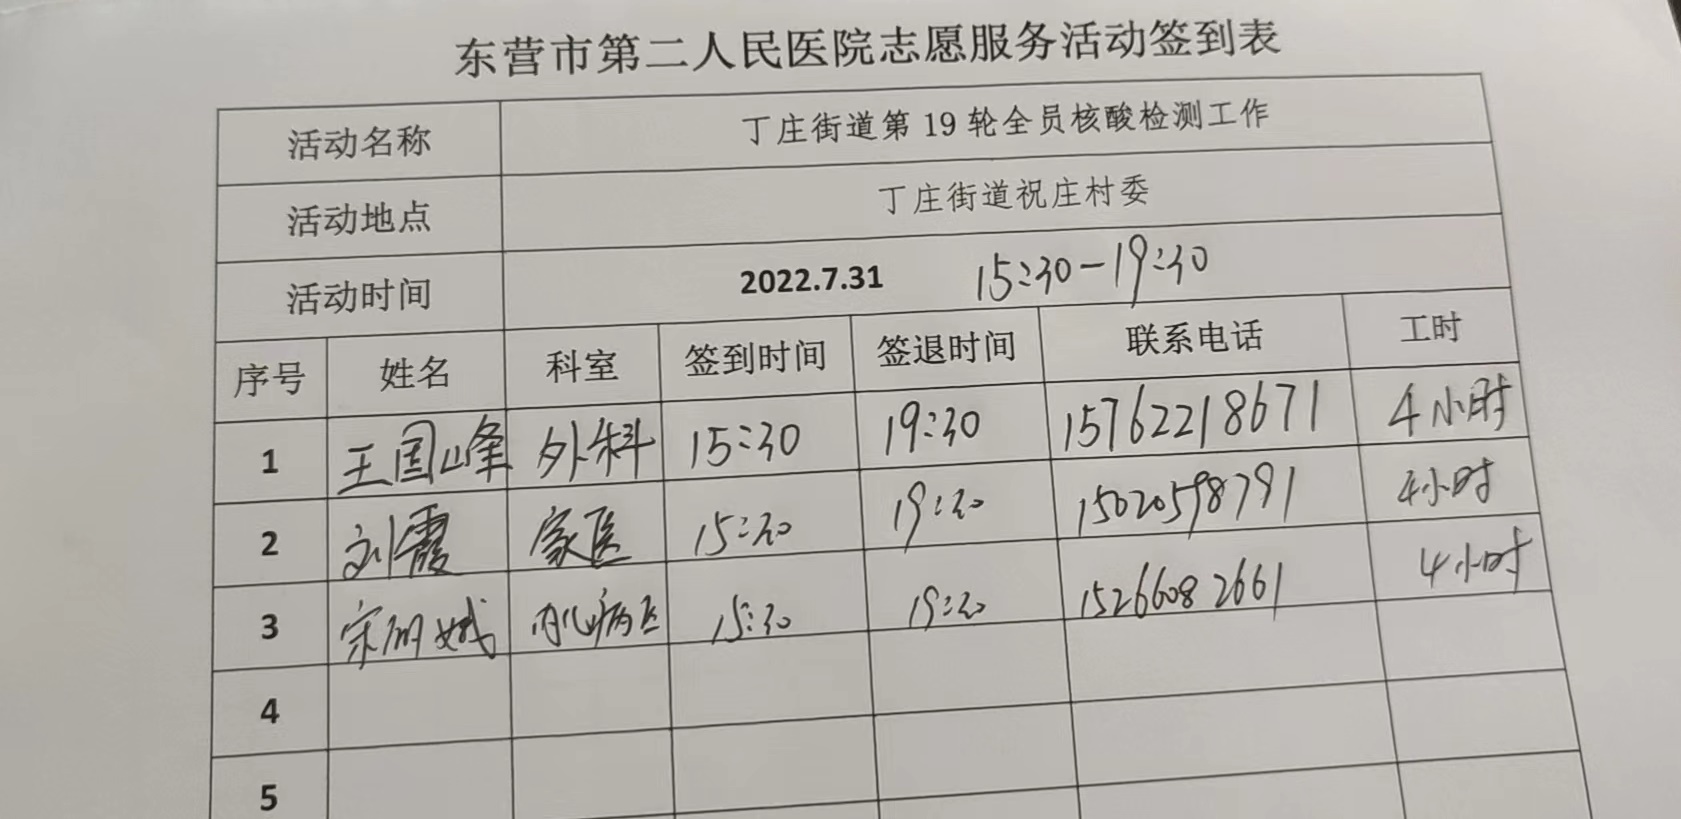 东营市第二人民医院志愿服务活动签到表
活动名称 丁庄街道第19轮全员核酸检测工作
活动地点 丁庄街道祝庄村委
活动时间 2022.7.31 15:30-19:30
序号 姓名 科室 签到时间 签退时间 联系电话 工时
1 王国峰 外科 15:30 19:30 15762218671 4小时
2 刘霞 家医 15:30 19:30 15020598791 4小时
3 宋 15:30 19:30 15266082661 4小时
4
5